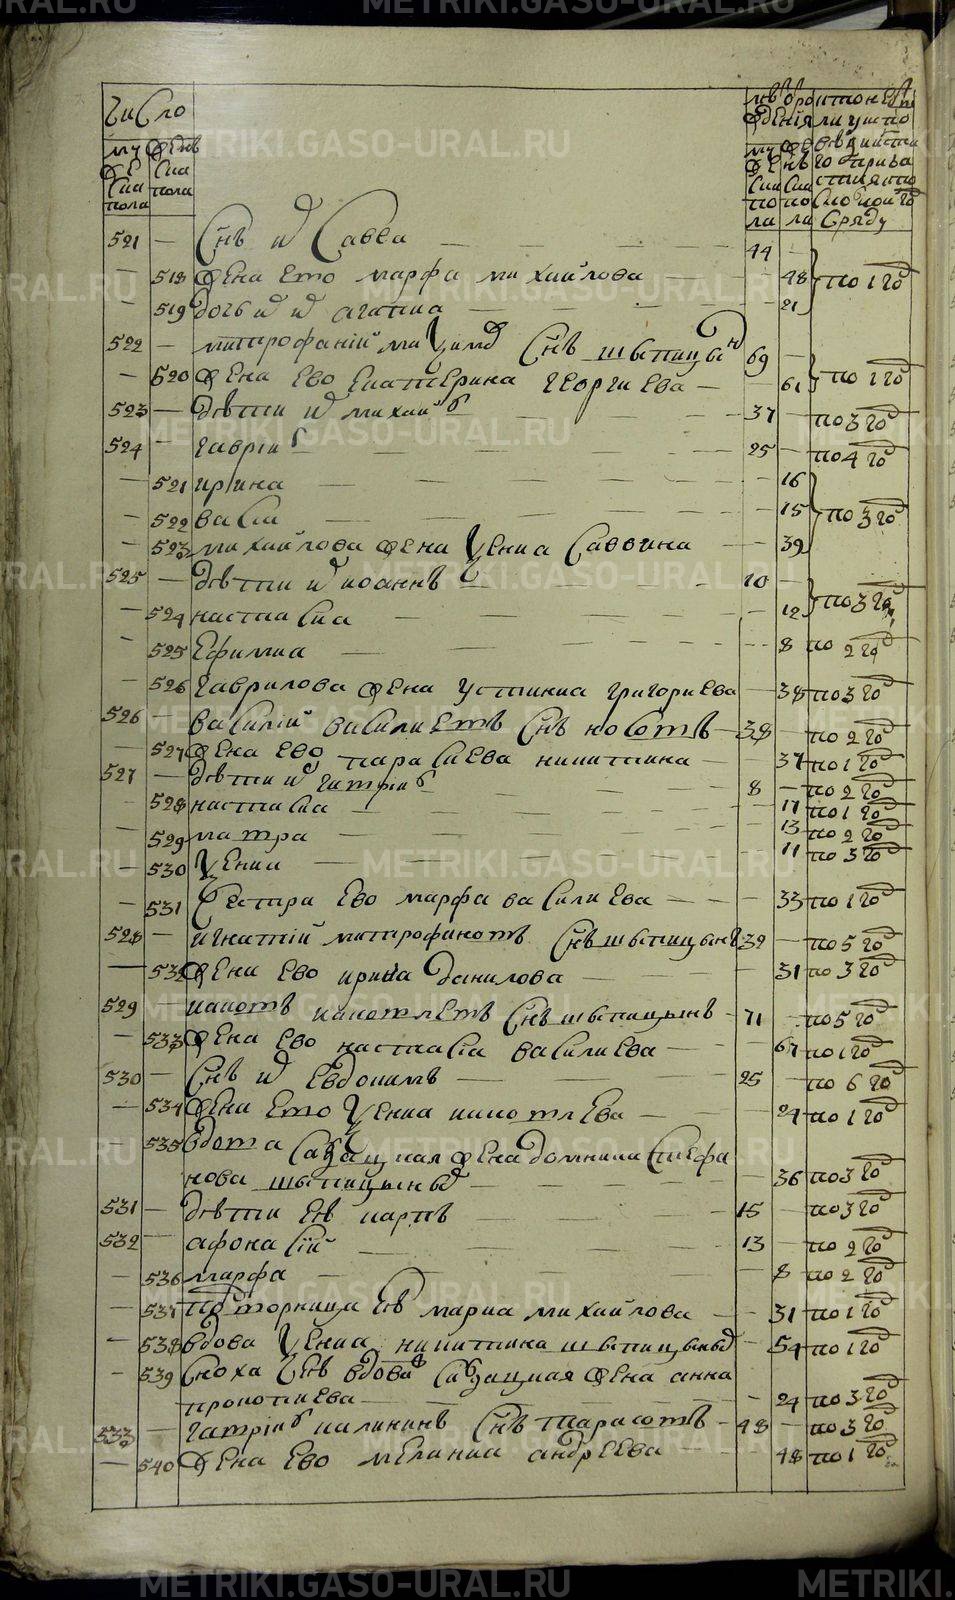 число
му же
ска пола
женъ
ска пола
лѣ рожденія
му же ска по ла
же нъ ска по ла
521 — Снъ и Савва — 44 —
— 518 жена его марфа михайлова — 48 по 1 го
— 519 дочь агапиа — 21
522 — митрофаній Снъ шыпицын 69 —
— 520 жена ево екатерина георгиева — 61 по 1 го
523 — дѣти михаил — 37 — по 3 го
524 — гавріил — 25 — по 4 го
— 521 ирина — 16
— 522 васса — 15 по 3 го
— 523 михайлова жена ксениа саввина — 39
525 — дѣти иоаннъ — 10 —
— 524 настасиа — 12 по 3 го
— 525 Ефимиа — 8 по 2 го
— 526 гаврилова жена устиниа григориева — 38 по 3 го
526 — василій василиевъ Снъ носовъ — 38 — по 2 го
— 527 жена ево параскева никитина — 37 по 1 го
527 — дѣти гаврил — 8 — по 2 го
— 528 настасиа — 17 по 1 го
— 529 матра — 13 по 2 го
— 530 ксениа — 11 по 3 го
— 531 сестра ево марфа василиева — 33 по 1 го
528 — игнатій митрофановъ Снъ шыпицынъ 39 — по 5 го
— 532 жена ево ирина данилова — 31 по 3 го
529 — иаковъ иаковлевъ Снъ шыпицынъ — 71 — по 5 го
— 533 жена ево настасиа василиева — 67 по 1 го
530 — Снъ Евдокимъ — 25 — по 6 го
— 534 жена его ксениа иаковлева — 24 по 1 го
— 535 вдова салдацкая жена домника стефа
нова шыпицыных — 36 по 3 го
531 — дѣти ея карпъ — 15 — по 3 го
532 — афонасій — 13 — по 2 го
— 536 марфа — 8 по 2 го
— 537 ея мариа михайлова — 31 по 1 го
— 538 вдова ксениа никитина шыпицыных — 54 по 1 го
— 539 сноха ея вдова салдацкая жена анна
прокопиева — 24 по 3 го
533 — гавріил калининъ Снъ тарасовъ — 48 — по 3 го
— 540 жена ево меланиа андреева — 48 по 1 го
METRIKI.GASO-URAL.RU